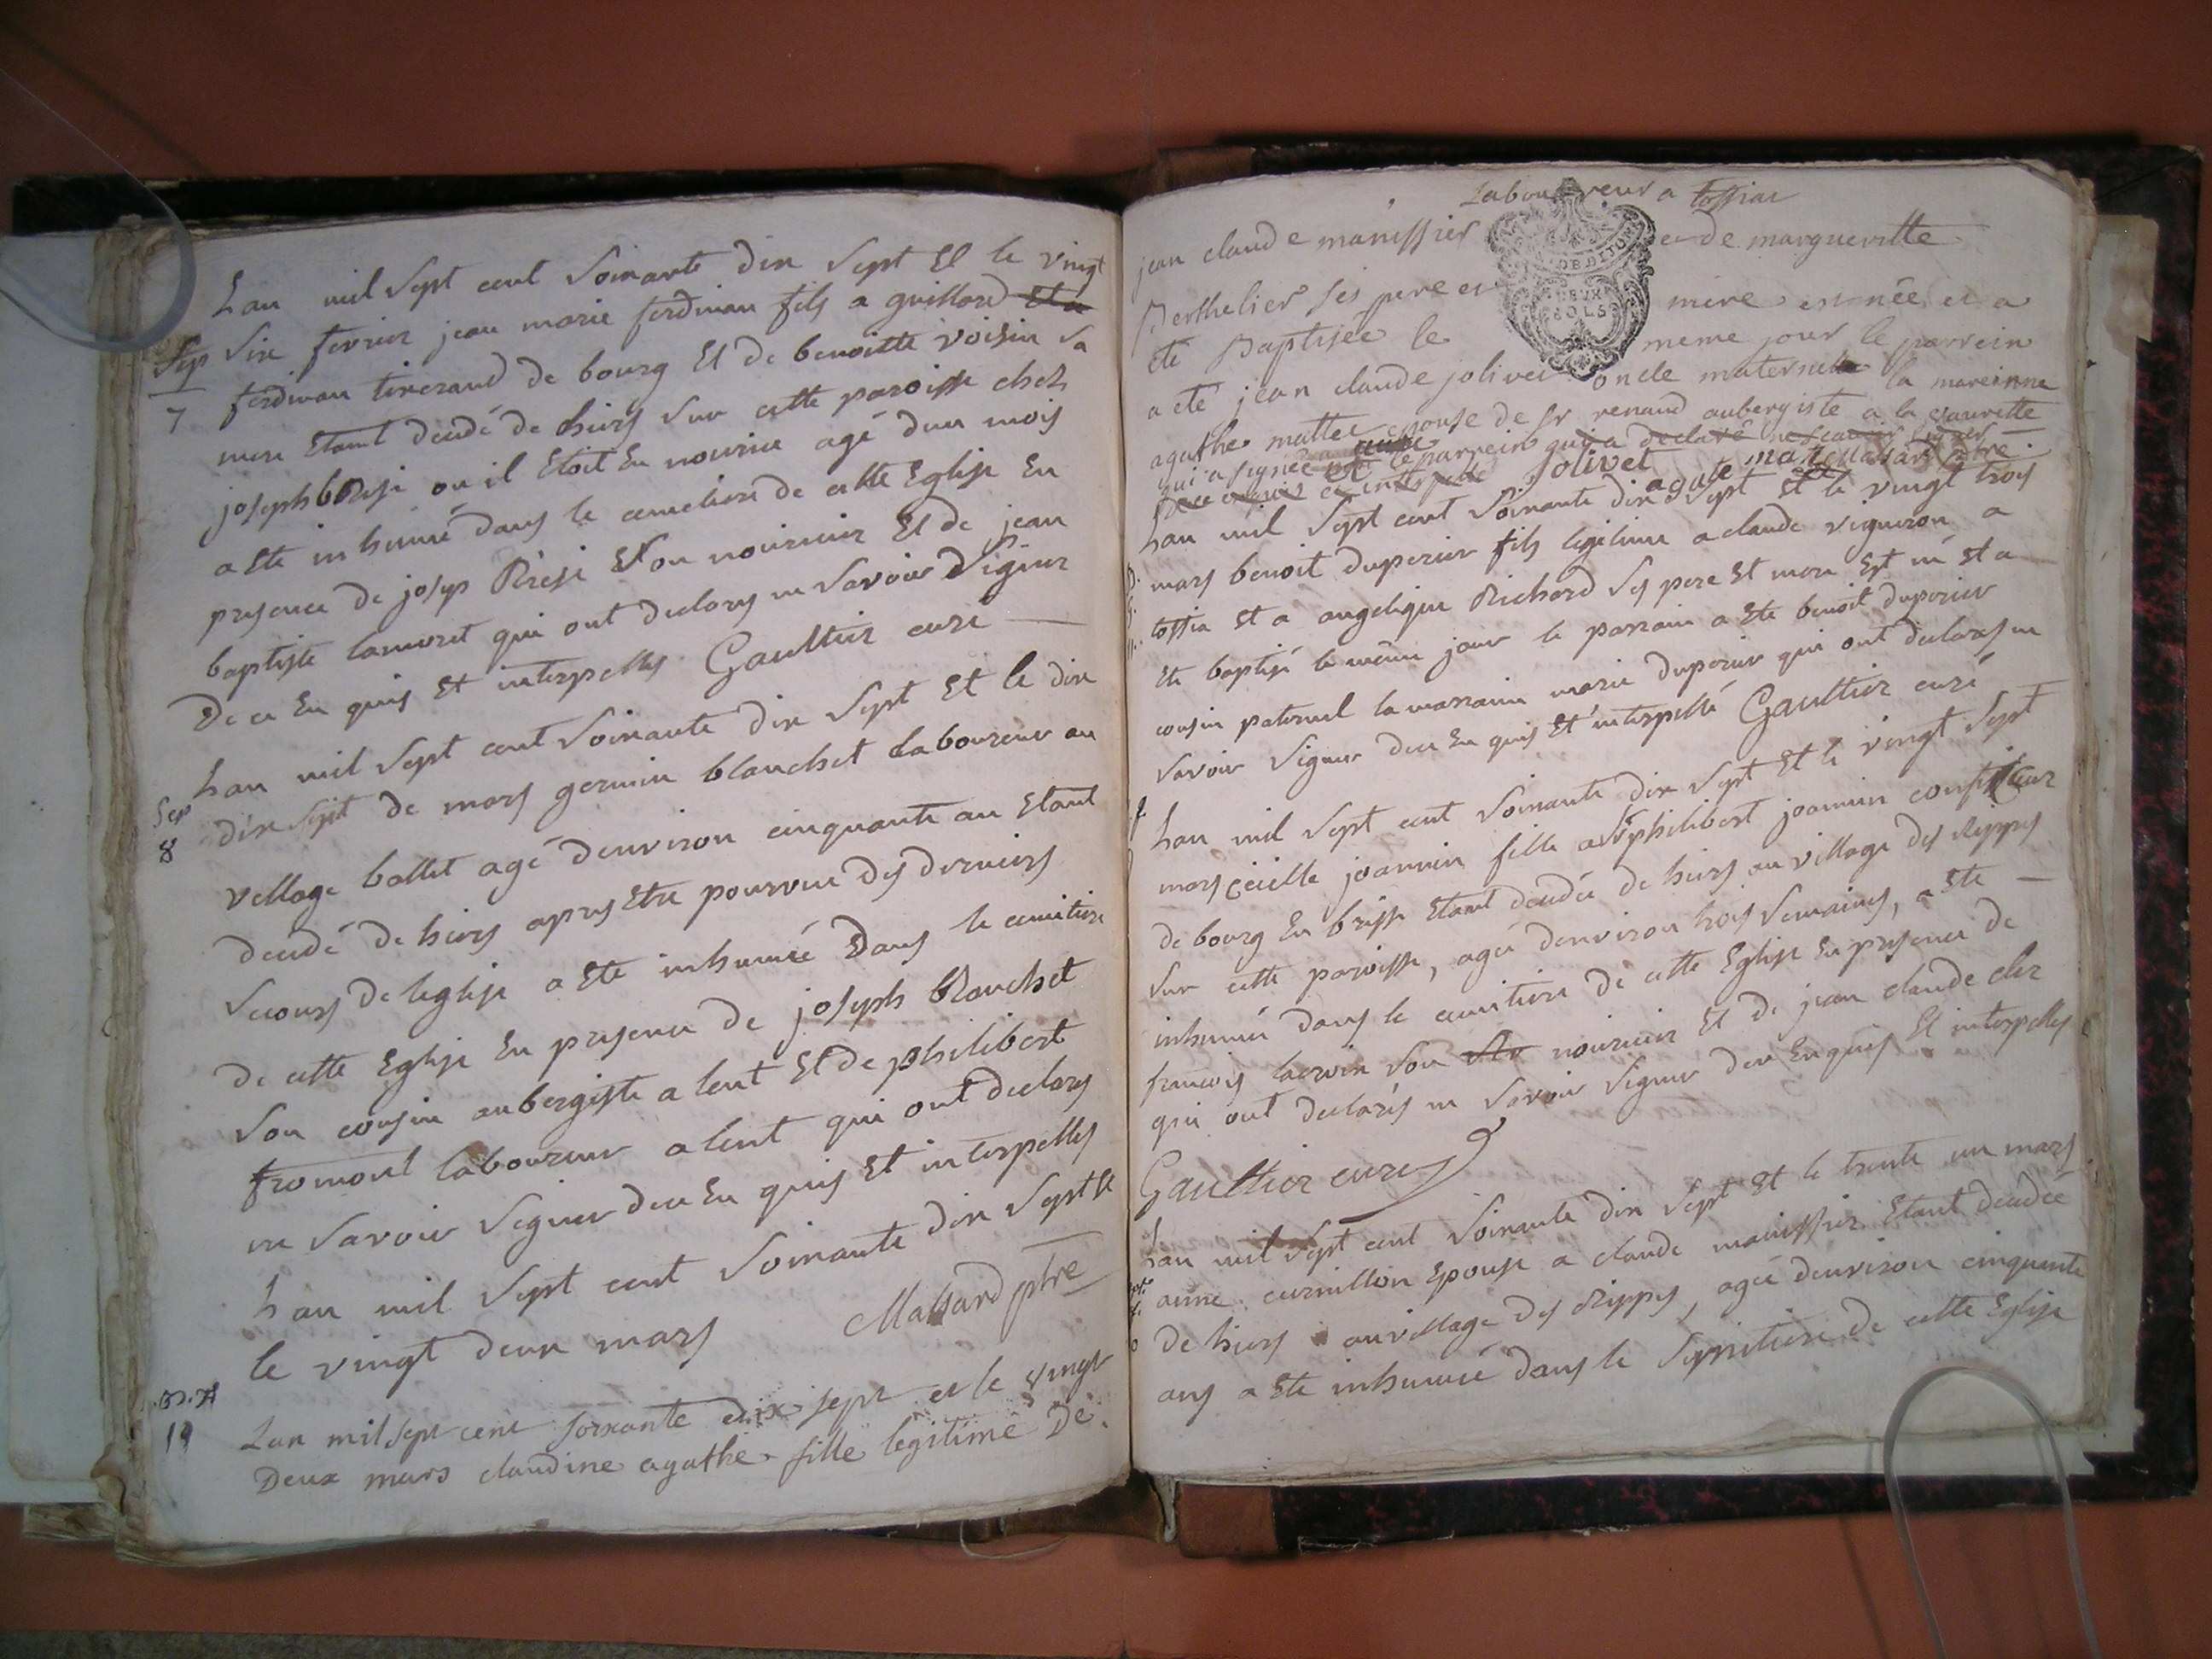 Lan mil sept cent soixante dix sept Et le vingt
Sep six fevrier jean marie ferdinan fils a guillard Et a
7 ferdinan tixerand de bourg Et de benoitte voisin sa
mere Etant decedé de hiers sur cette paroisse chez
joseph ou il Etoit En nourice agé dun mois
a Ete inhumé dans le cemetiere de cette Eglise En
presence de josep son nouricier Et de jean
baptiste lamoret qui ont declarés ne savoir signer
De ce En quis Et interpellés Gaultier curé
Lan mil sept cent soixante dix sept Et le dix
Sep dix sept de mars germin blanchet laboureur au
8 village ballet agé denviron cinquante an Etant
decedé de hiers apres Etre pourvue des derniers
secours de leglise a Ete inhumé Dans le cemitiere
de cette Eglise En presence de joseph blanchet
son cousin aubergiste a lent Et de philibert
fromont laboureur a lent qui ont declarés
ne savoir signer dece En quis Et interpellés
Lan mil sept cent soixante dix sept Et
le vingt deux mars Mallard ptre
19 Lan mil sept cent soixante dix sept et le vingt
Deux mars claudine agathe fille legitime De
Laboureur a tossiat
jean claude manissier et de margueritte
Berthelier ses pere et mere est née et a
eté Baptisée le meme jour le parrein
a eté jean claude jolivet oncle maternel la mareinne
agathe mattet epouse de sr renaud aubergiste a la vavrette
qui a signée le parrein qui a declaré ne scavoir signer
De ce enquis et interpellé jolivet agate mattet Mallard ptre
Lan mil sept cent soixante dix sept Et le vingt trois
mars benoit duperier fils legitime a claude vigneron a
tossia Et a angelique Richard ses pere Et mere Est né Et a
Ete baptisé le meme jour le parrain a Ete benoit duperier
cousin paternel la marraine marie duperier qui ont declarés ne
savoir signer dece En quis Et interpellé Gaultier curé
Lan mil sept cent soixante dix sept Et le vingt sept
mars joannin fille a Sr philibert joannin
de bourg En bresse Etant decedée de hiers au village des Rippes
sur cette paroisse, agée denviron trois semaines, a Ete
inhumée dans le cemitiere de cette Eglise En presence de
francois son nouricier Et de jean claude
qui ont declarés ne savoir signer dece Enquis Et interpellés
Gaultier curé
Lan mil sept cent soixante dix sept Et le trente un mars
anne curnillon Epouse a claude manissier Etant decedée
de hiers au village des Rippes, agée denviron cinquante
ans a Ete inhumée dans le de cette Eglise